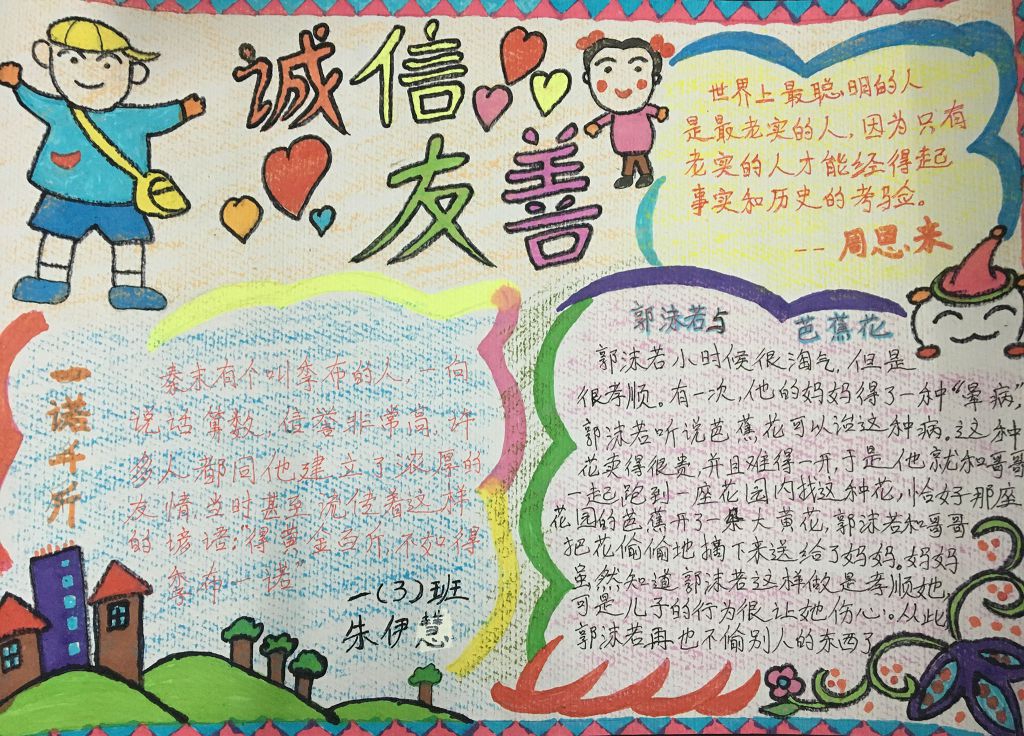 诚信
友善
世界上最聪明的人
是最老实的人，因为只有
老实的人才能经得起
事实和历史的考验。
--周恩来
一诺千斤
秦末有个叫季布的人，一向
说话算数，信誉非常高，许
多人都同他建立了浓厚的
友情，当时甚至流传着这样
的谚语："得黄金百斤，不如得
季布一诺"
一(3)班
朱伊慧
郭沫若与 芭蕉花
郭沫若小时候很淘气，但是
很孝顺。有一次，他的妈妈得了一种"晕病，"
郭沫若听说芭蕉花可以治这种病。这种
花卖得很贵，并且难得一开，于是他就和哥哥
一起跑到一座花园内找这种花，恰好那座
花园的芭蕉开了一朵大黄花，郭沫若和哥哥
把花偷偷地摘下来送给了妈妈。妈妈
虽然知道郭沫若这样做是孝顺她，
可是儿子的行为很让她伤心。从此
郭沫若再也不偷别人的东西了